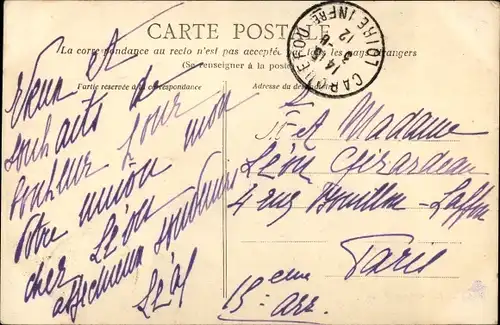 CARTE POSTALE
La correspondance au recto n'est pas acceptée par tous les pays étrangers
(Se renseigner à la poste)
Partie réservée à la correspondance
Adresse du destinataire
CARQUEFOU
LOIRE INFRE
14 45
3 -8
12
Vœux et
souhaits de
bonheur pour
votre union mon
cher Léon
affectueux souvenirs
Mr et Madame
Léon Girardeau
4 rue Bouillou-Laffon
Paris
15eme arr.